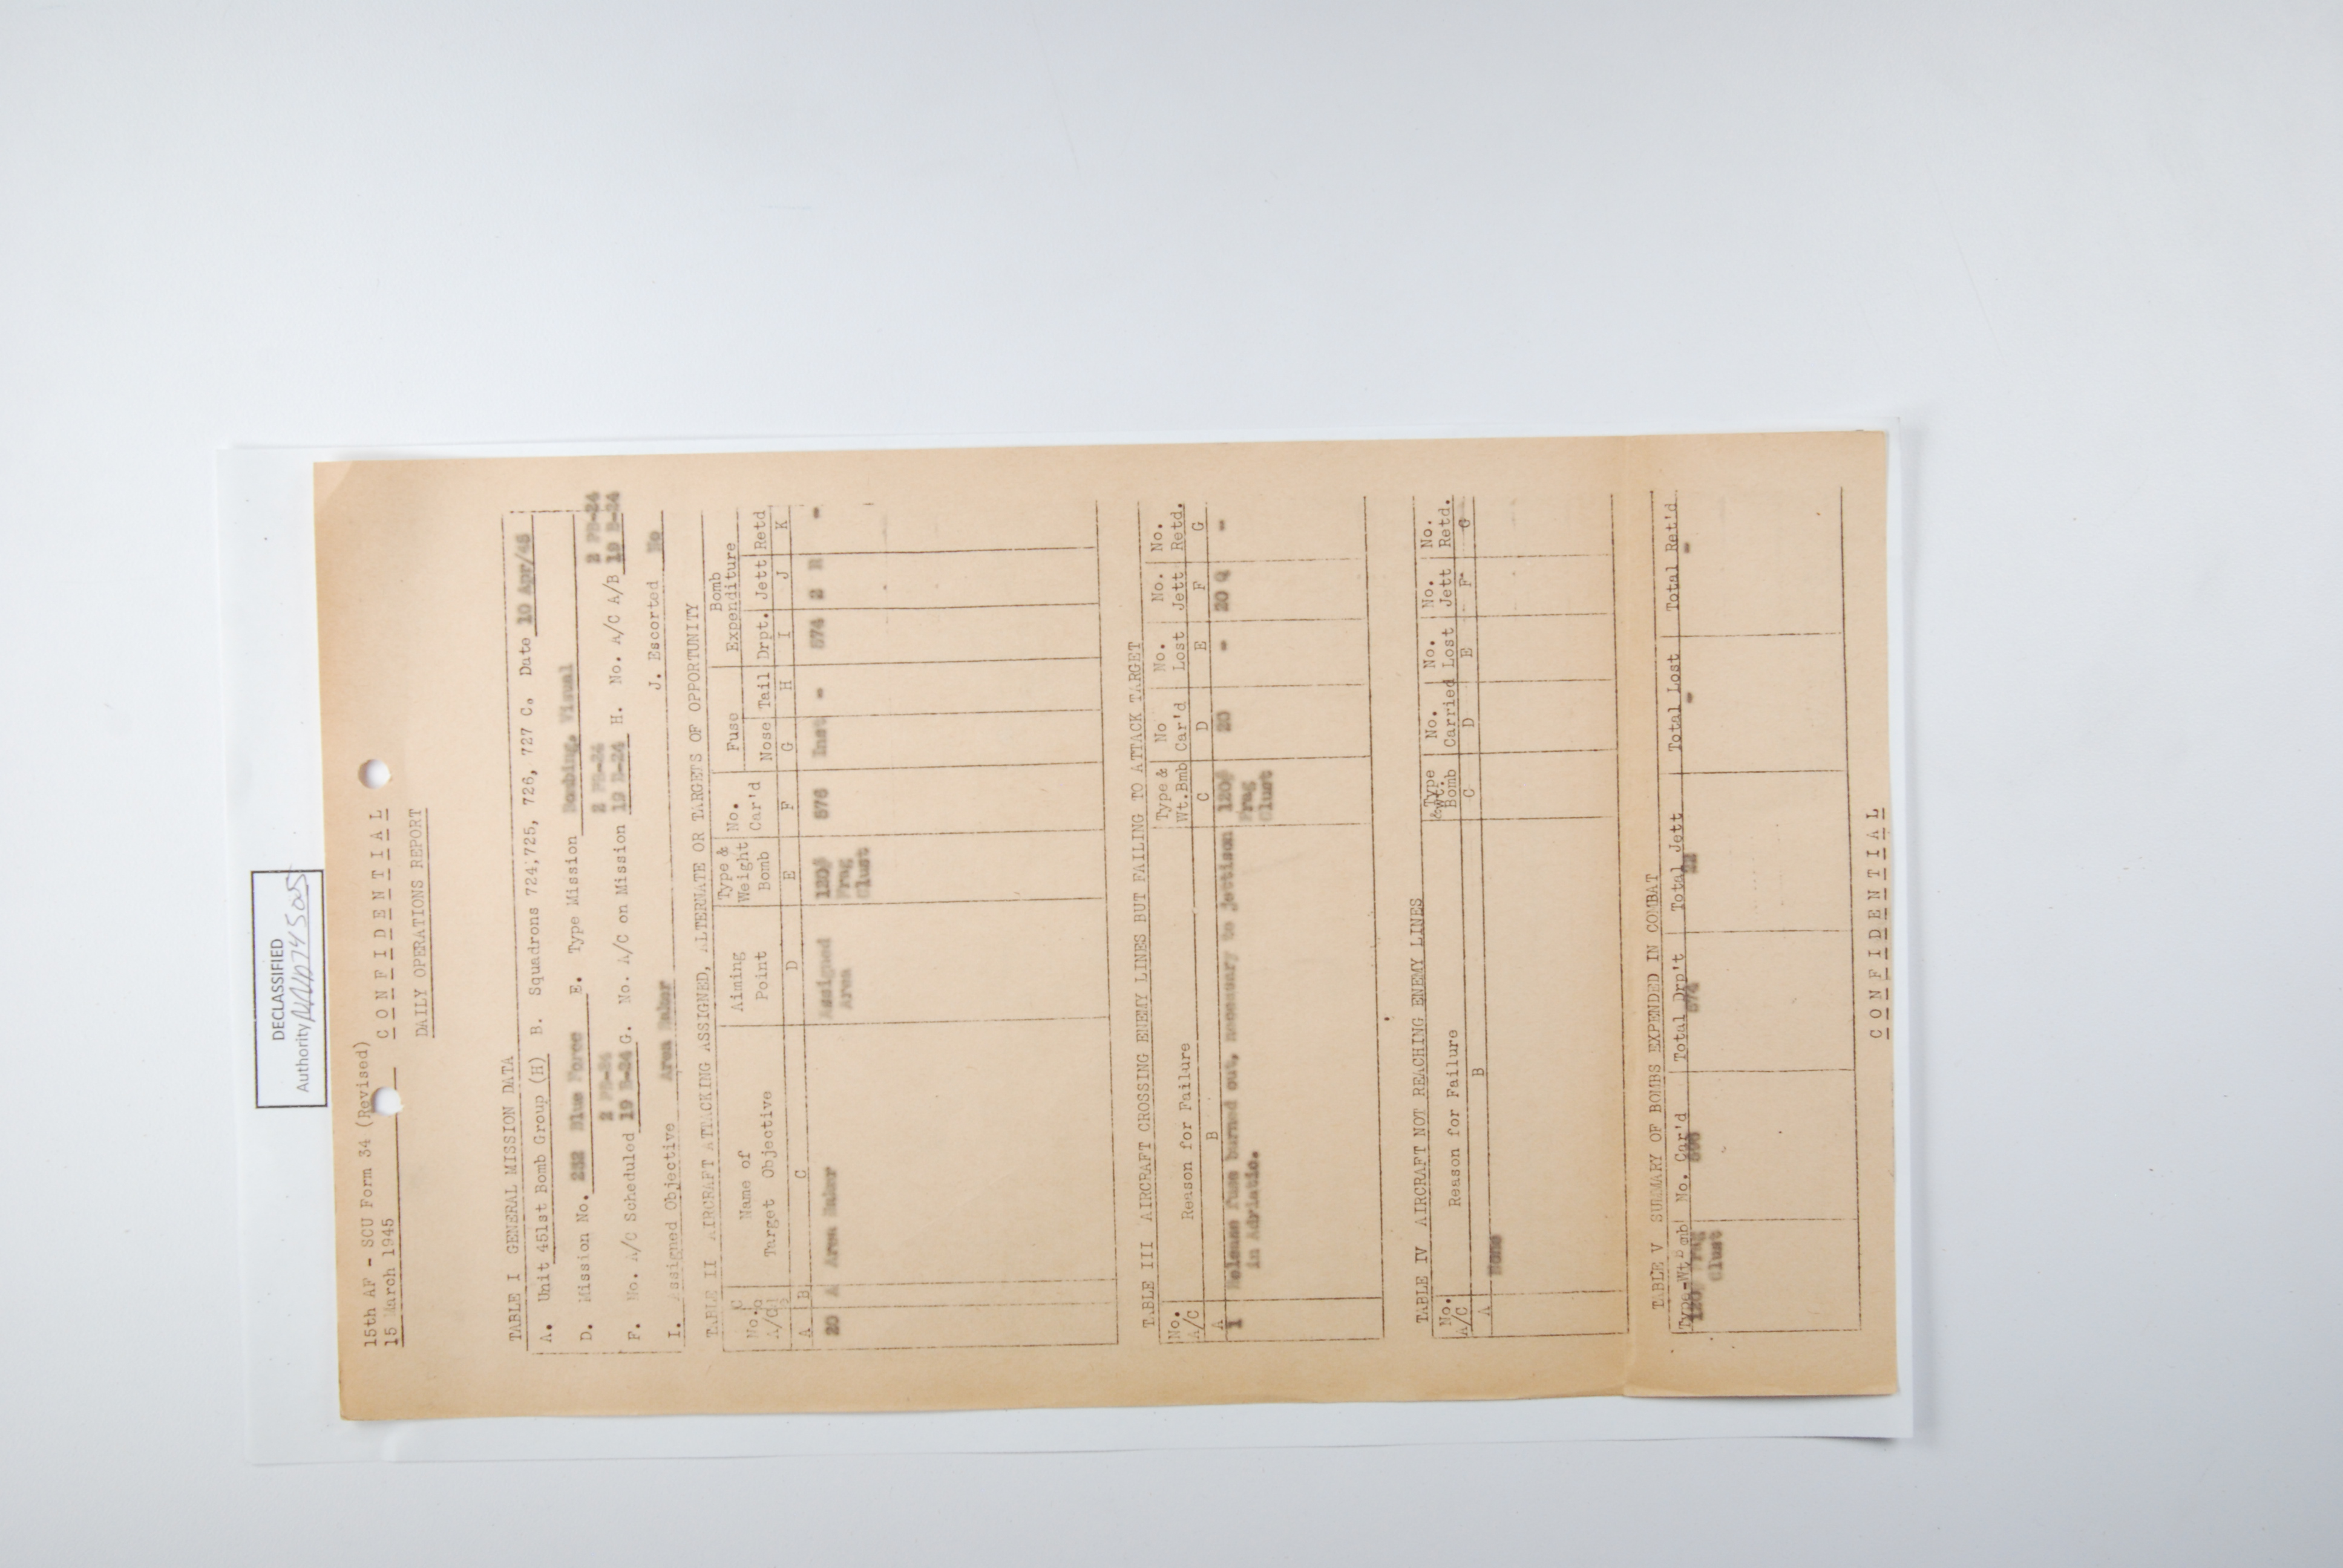 DECLASSIFIED
Authority NND745005
15th AF - SCU Form 34 (Revised)
15 March 1945
C O N F I D E N T I A L
DAILY OPERATIONS REPORT
TABLE I GENERAL MISSION DATA
A. Unit 451st Bomb Group (H) B. Squadrons 724,725, 726, 727 C. Date 10 Apr/45
D. Mission No. 232 Blue Force E. Type Mission Bombing, Visual
2 PB-24 2 PB-24 2 PB-24
F. No. A/C Scheduled 19 B-24 G. No. A/C on Mission 19 B-24 H. No. A/C A/B 19 B-24
I. Assigned Objective Area Baker J. Escorted No
TABLE II AIRCRAFT ATTACKING ASSIGNED, ALTERNATE OR TARGETS OF OPPORTUNITY
No. A/C Name of Target Objective Aiming Point Type & Weight Bomb No. Car'd Fuse Nose Tail Bomb Expenditure Drpt. Jett Retd
A B C D E F G H I J K
20 A Area Baker Assigned 120# 576 Inst - 574 2 R -
Area Frag
Clust
TABLE III AIRCRAFT CROSSING ENEMY LINES BUT FAILING TO ATTACK TARGET
No. A/C Reason for Failure Type & Wt.Bmb No Car'd No. Lost No. Jett No. Retd.
A B C D E F G
1 Release fuse burned out, necessary to jettison 120# 20 - 20 Q -
in Adriatic. Frag
Clust
TABLE IV AIRCRAFT NOT REACHING ENEMY LINES
No. A/C Reason for Failure Type & Wt. Bomb No. Carried No. Lost No. Jett No. Retd.
A B C D E F G
None
TABLE V SUMMARY OF BOMBS EXPENDED IN COMBAT
Type-Wt Bomb No. Car'd Total Drp't Total Jett Total Lost Total Ret'd
120# Frag 596 574 22 - -
Clust
C O N F I D E N T I A L